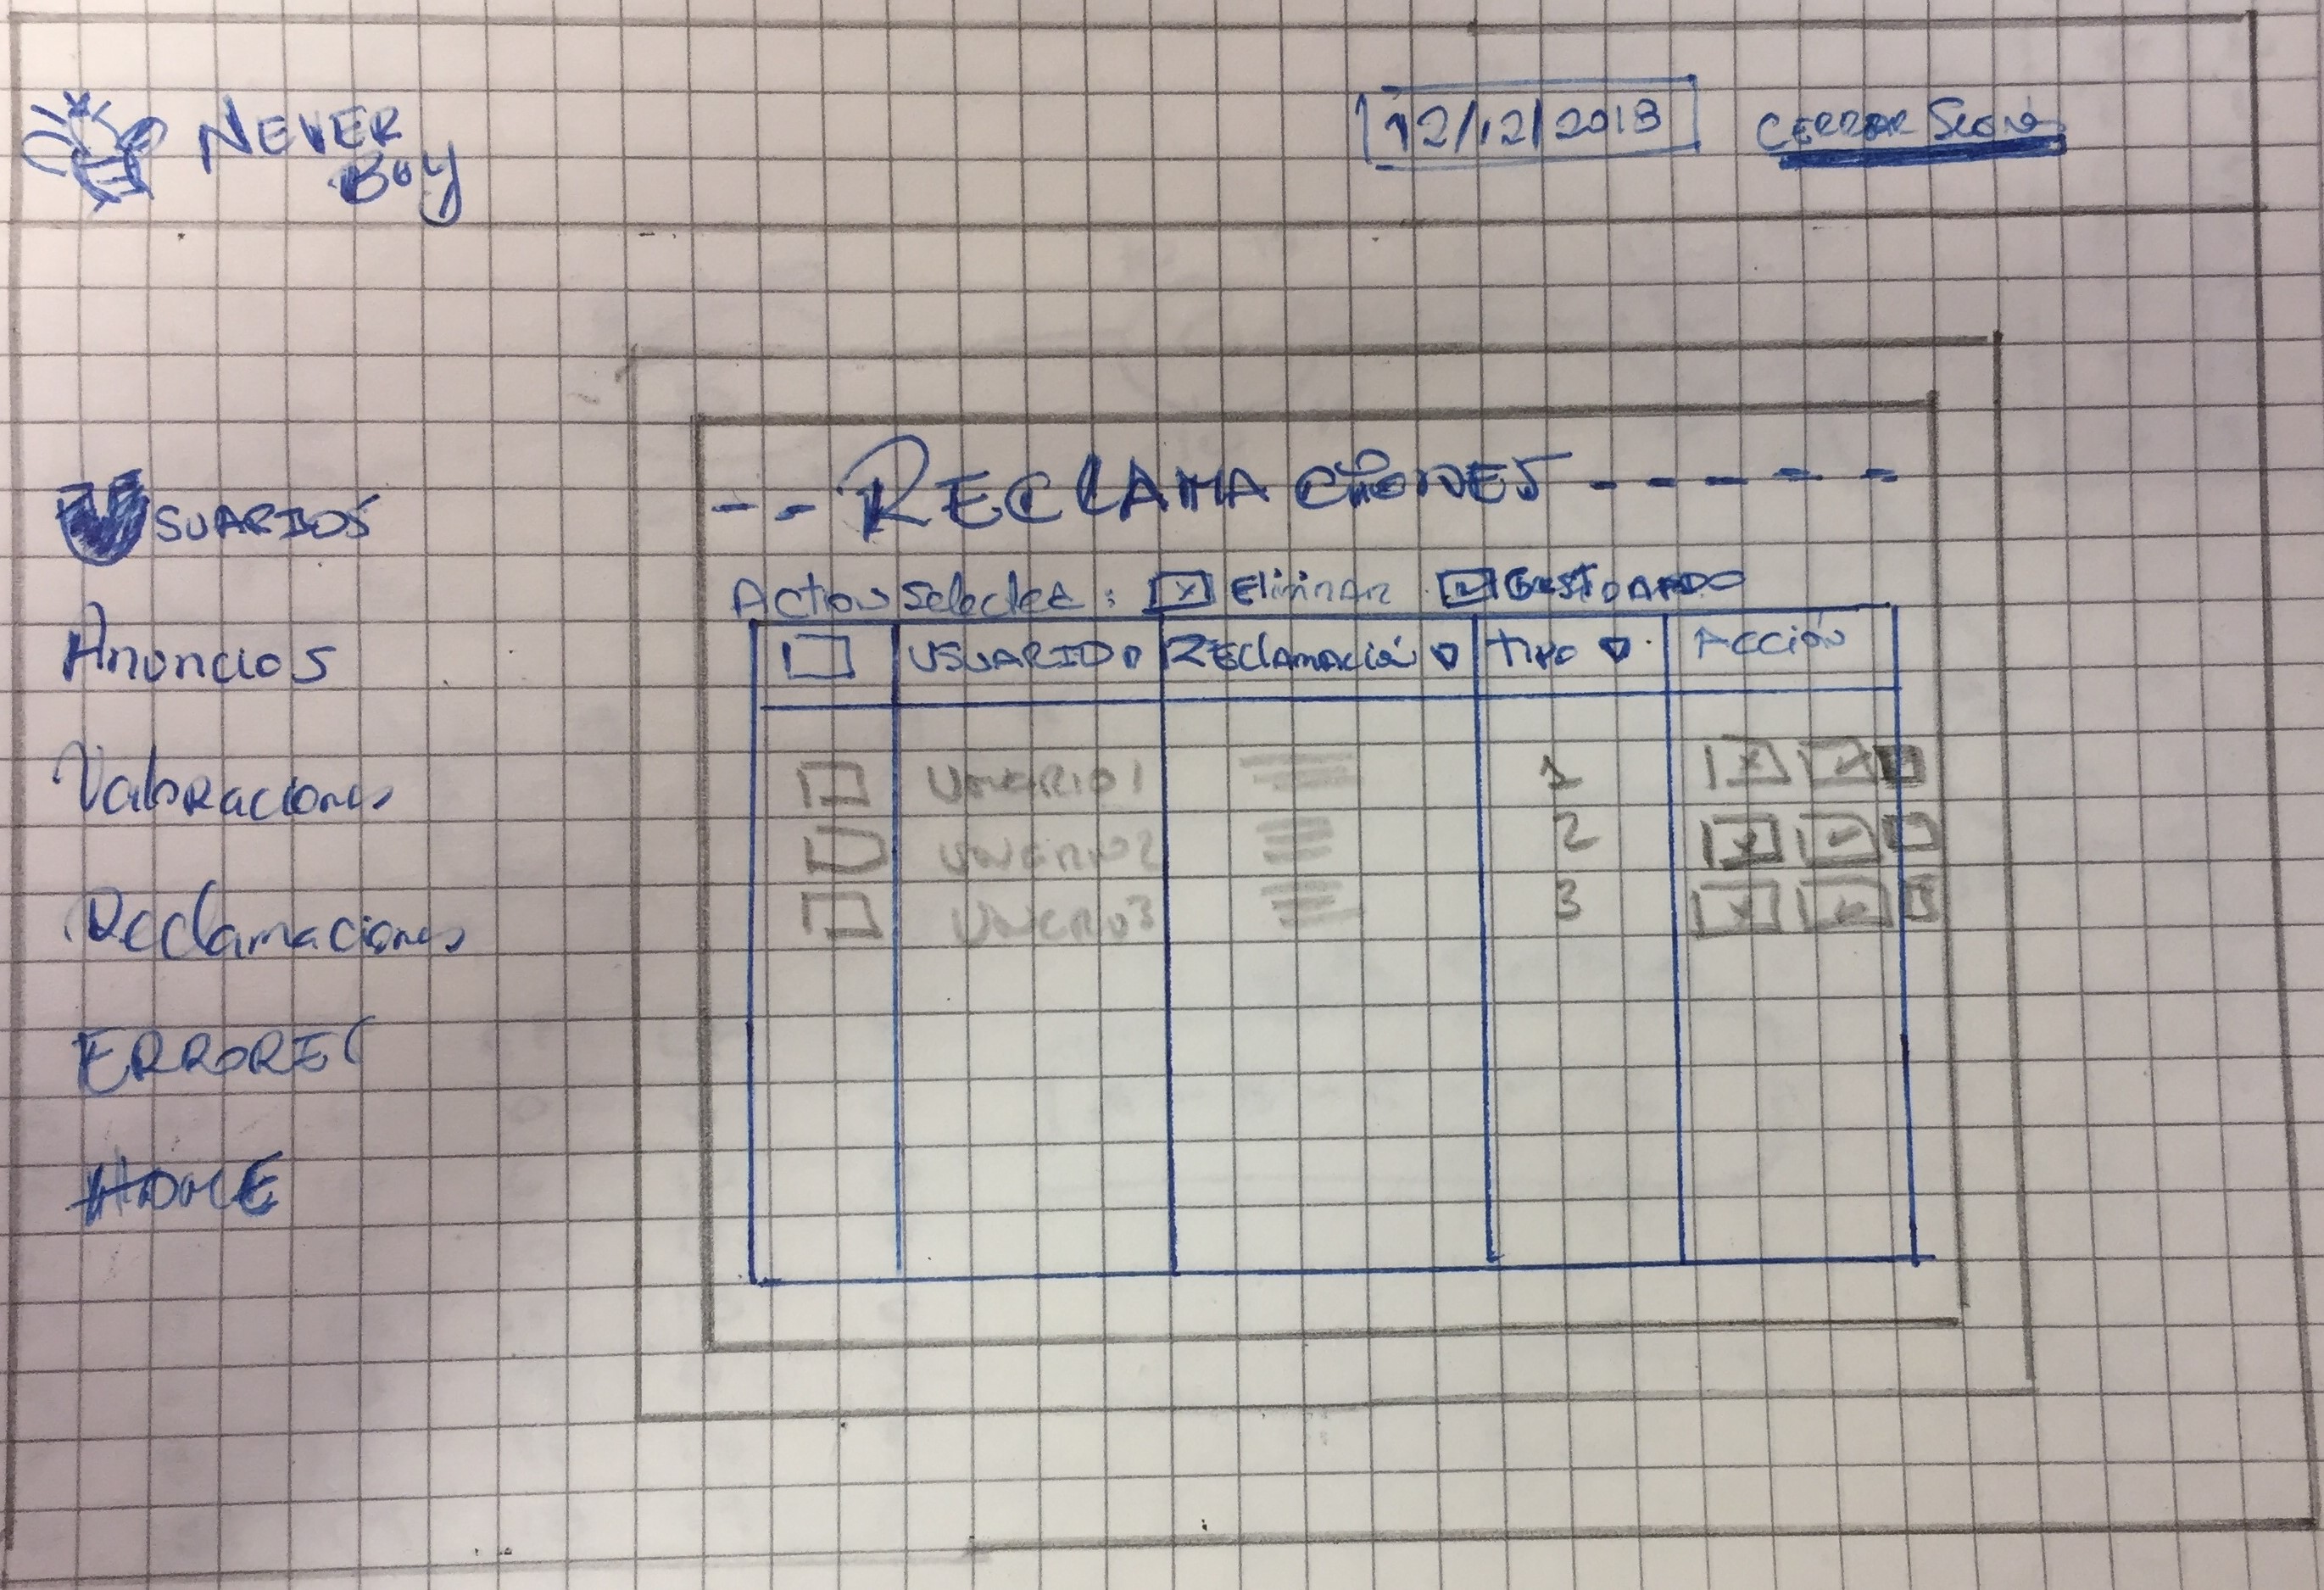 NEVER
Buy
12/12/2018
CERRAR Sesión
USUARIOS
Anuncios
Valoraciones
Reclamaciones
ERRORES
HOME
-- RECLAMACIONES ------
Action Selected: Eliminar Gestionado
USUARIO RECLAMACIÓN TIPO ACCIÓN
USUARIO1 1
USUARIO2 2
USUARIO3 3